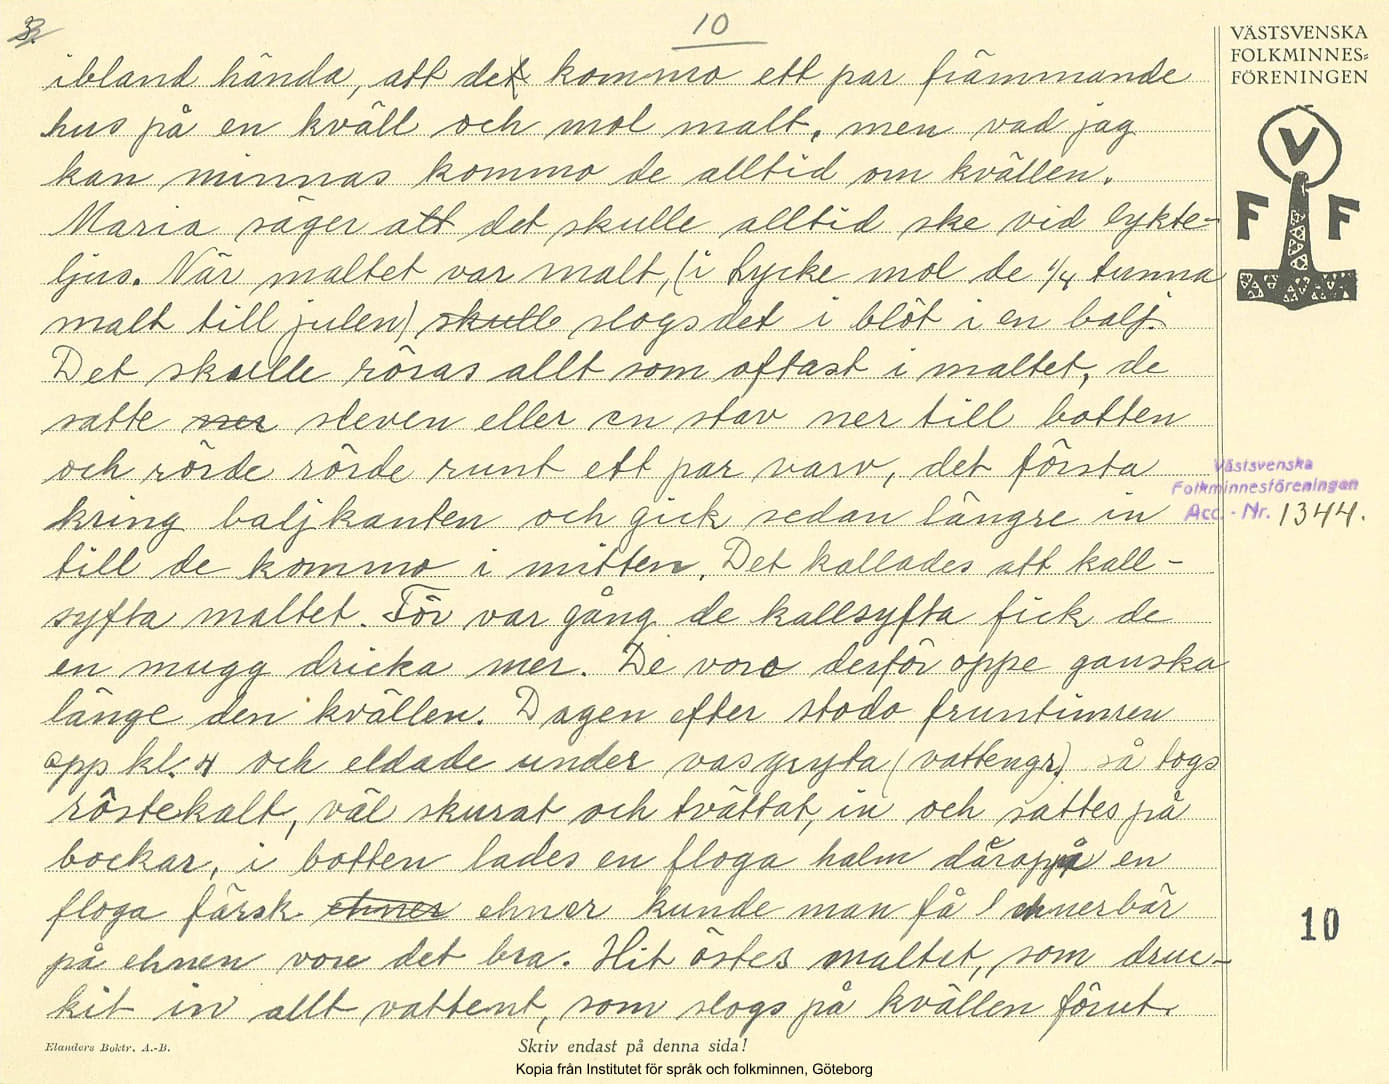 3.
10
VÄSTSVENSKA
FOLKMINNES=
FÖRENINGEN
V
F F
ibland hända, att det kommo ett par främmande
hus på en kväll och mol malt, men vad jag
kan minnas kommo de alltid om kvällen.
Maria säger att det skulle alltid ske vid lykte-
ljus. När maltet var malt, (i Lycke mol de 1/4 tunna
malt till julen) skulle slogs det i blöt i en balj.
Det skulle röras allt som oftast i maltet, de
satte ner sleven eller en stav ner till botten
och rörde rörde runt ett par varv, det första
kring baljkanten och gick sedan längre in
till de kommo i mitten. Det kallades att kall-
syfta maltet. För var gång de kallsyfta fick de
en mugg dricka mer. De voro desför oppe ganska
länge den kvällen. Dagen efter stodo fruntimren
opp kl. 4 och eldade under vasgryta (vattengr.) så togs
röstekalt, väl skurat och tvättat, in och sattes på
bockar, i botten lades en floga halm däroppå en
floga färsk ehner ehner kunde man få ehnerbär
på ehnen vore det bra. Hit östes maltet, som druc-
kit in allt vattent, som slogs på kvällen förut.
Västsvenska
Folkminnesföreningen
Acc. - Nr. 1344.
10
Elanders Boktr. A.-B.
Skriv endast på denna sida!
Kopia från Institutet för språk och folkminnen, Göteborg